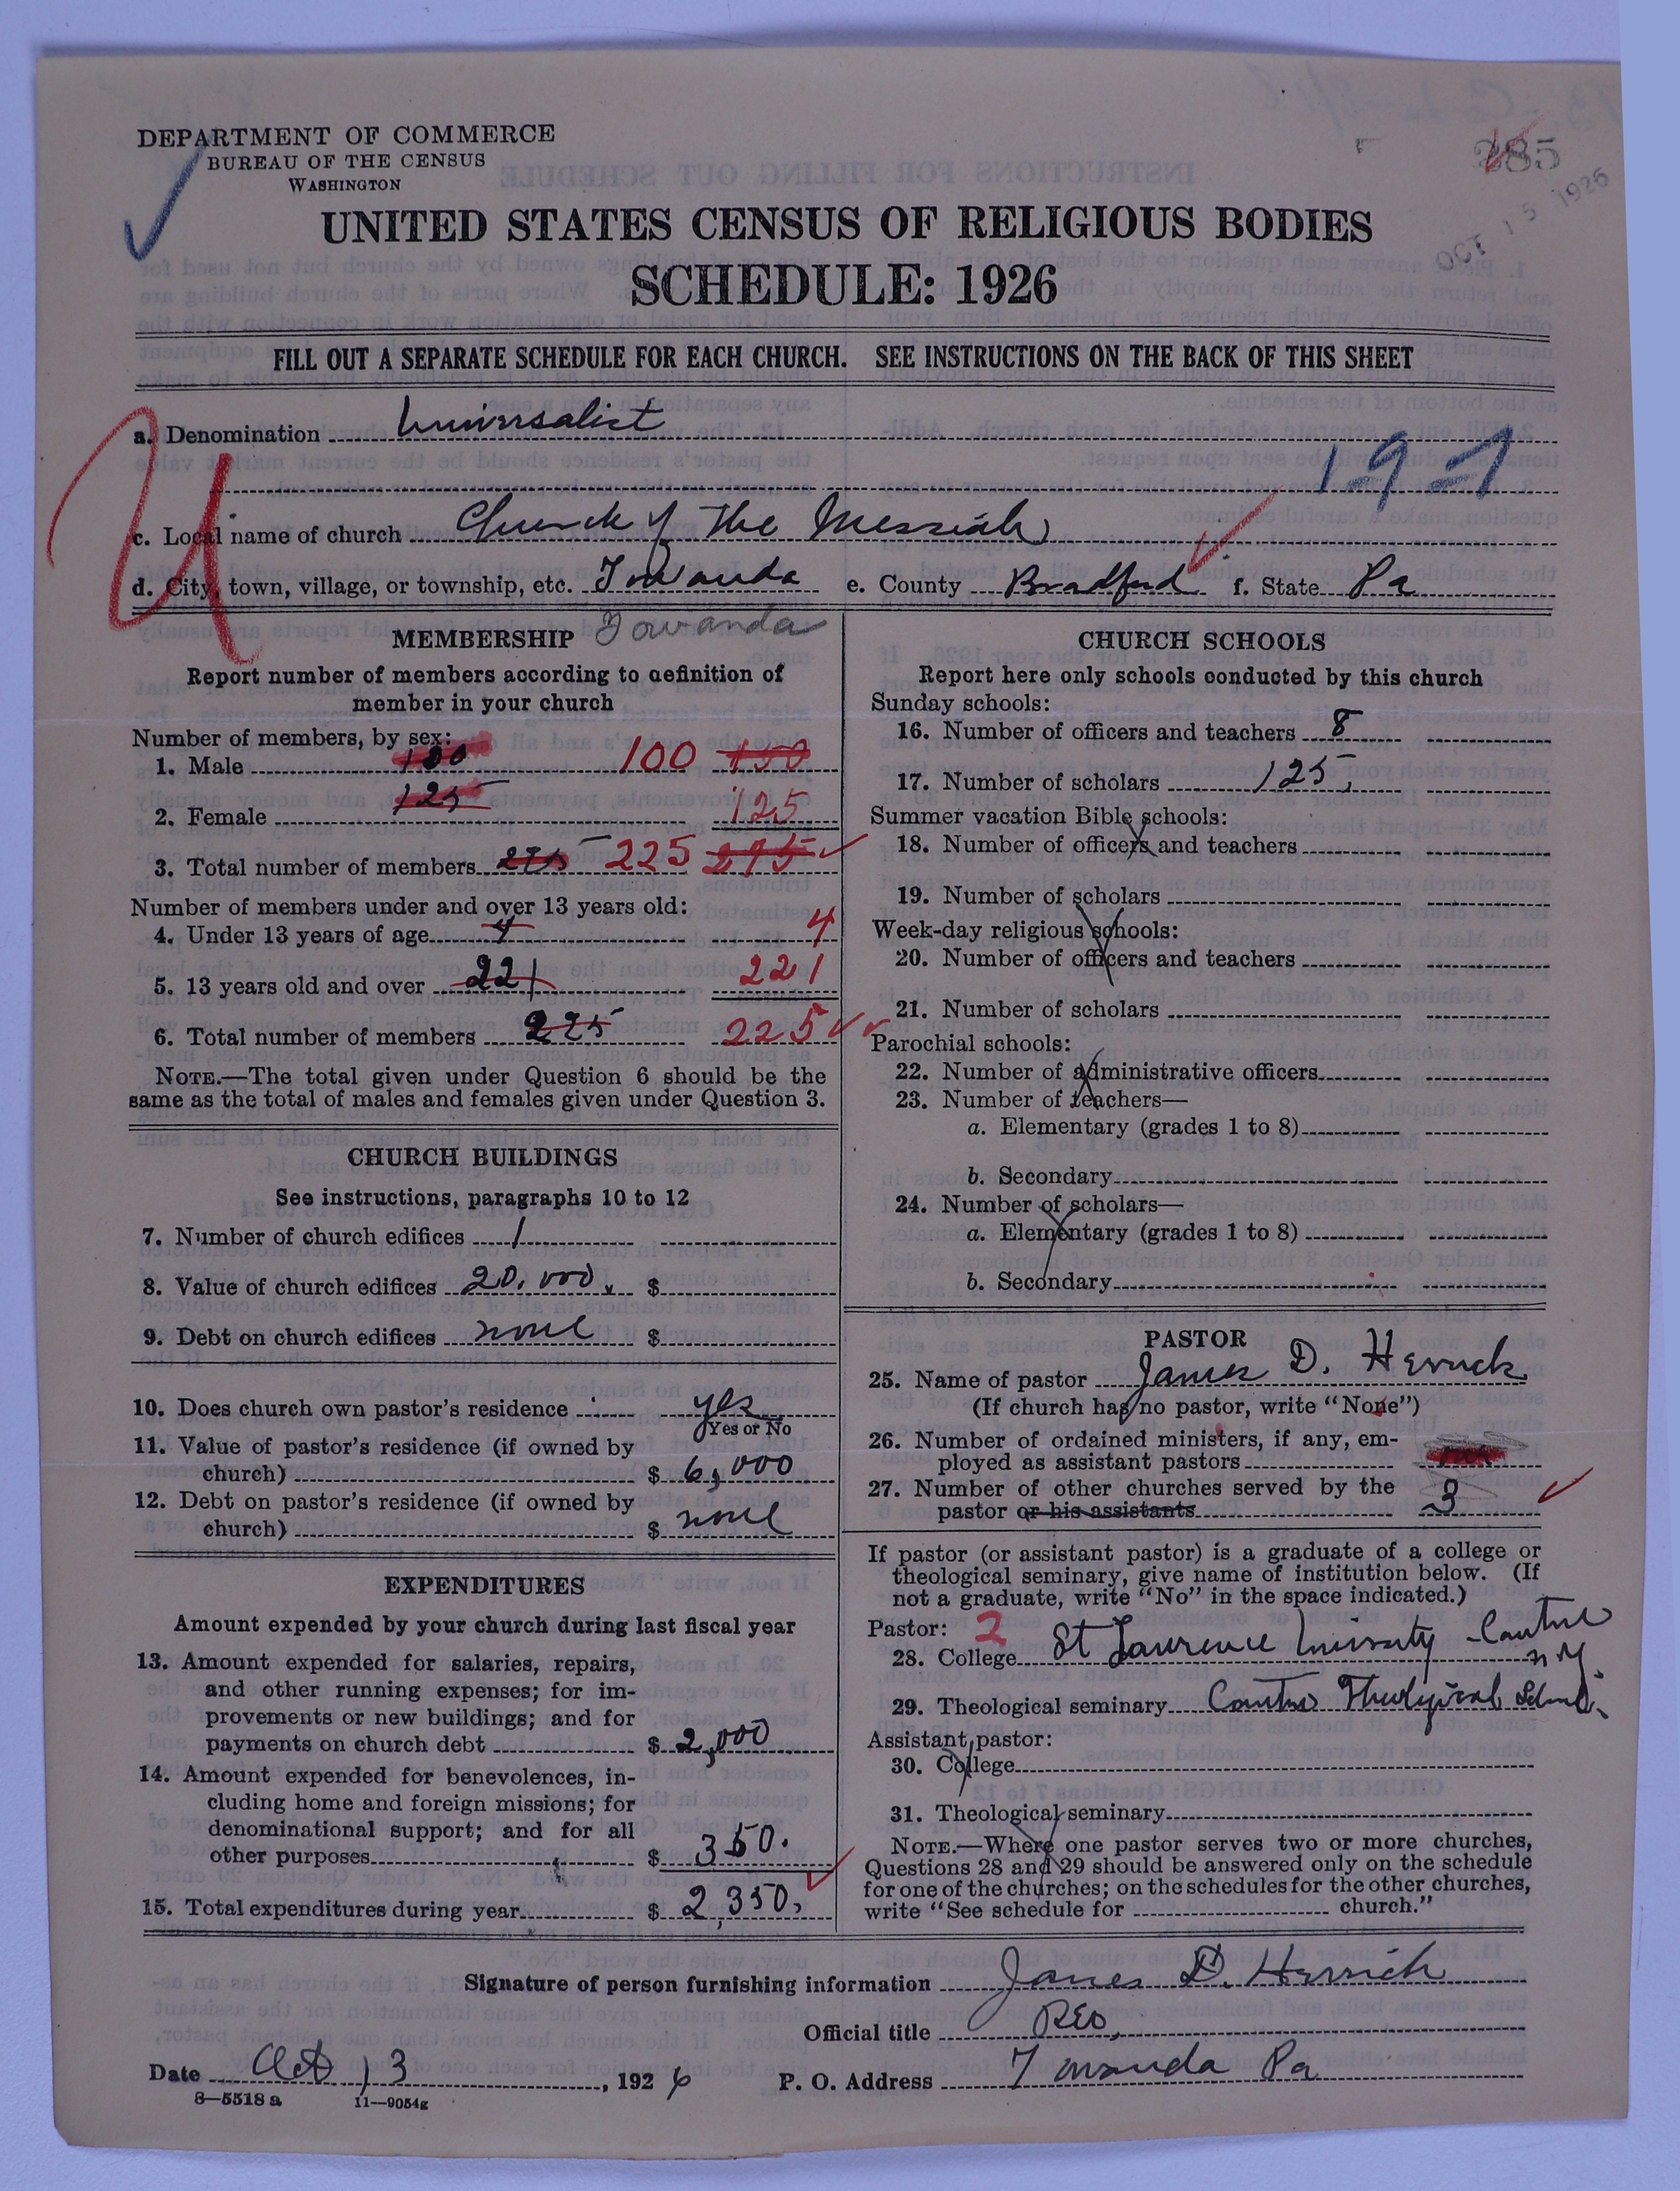 DEPARTMENT OF COMMERCE
BUREAU OF THE CENSUS
WASHINGTON
385
OCT 15 1926
UNITED STATES CENSUS OF RELIGIOUS BODIES
SCHEDULE: 1926
FILL OUT A SEPARATE SCHEDULE FOR EACH CHURCH. SEE INSTRUCTIONS ON THE BACK OF THIS SHEET
U
a. Denomination Universalist
19-7
c. Local name of church Church of the Messiah
d. City, town, village, or township, etc. Towanda e. County Bradford f. State Pa
MEMBERSHIP Towanda
Report number of members according to definition of
member in your church
Number of members, by sex:
1. Male 100 100 150
2. Female 125 125
3. Total number of members 275 225 275
Number of members under and over 13 years old:
4. Under 13 years of age 4 4
5. 13 years old and over 221 221
6. Total number of members 225 225
NOTE.—The total given under Question 6 should be the
same as the total of males and females given under Question 3.
CHURCH BUILDINGS
See instructions, paragraphs 10 to 12
7. Number of church edifices 1
8. Value of church edifices 20,000. $
9. Debt on church edifices none $
10. Does church own pastor's residence yes
Yes or No
11. Value of pastor's residence (if owned by
church) $ 6,000
12. Debt on pastor's residence (if owned by
church) $ none
EXPENDITURES
Amount expended by your church during last fiscal year
13. Amount expended for salaries, repairs,
and other running expenses; for im-
provements or new buildings; and for
payments on church debt $ 2,000
14. Amount expended for benevolences, in-
cluding home and foreign missions; for
denominational support; and for all
other purposes $ 350.
15. Total expenditures during year $ 2,350.
CHURCH SCHOOLS
Report here only schools conducted by this church
Sunday schools:
16. Number of officers and teachers 8
17. Number of scholars 125
Summer vacation Bible schools:
18. Number of officers and teachers
19. Number of scholars
Week-day religious schools:
20. Number of officers and teachers
21. Number of scholars
Parochial schools:
22. Number of administrative officers
23. Number of teachers—
a. Elementary (grades 1 to 8)
b. Secondary
24. Number of scholars—
a. Elementary (grades 1 to 8)
b. Secondary
PASTOR
25. Name of pastor James D. Herrick
(If church has no pastor, write "None")
26. Number of ordained ministers, if any, em-
ployed as assistant pastors
27. Number of other churches served by the
pastor or his assistants 3
If pastor (or assistant pastor) is a graduate of a college or
theological seminary, give name of institution below. (If
not a graduate, write "No" in the space indicated.)
Pastor: 2
28. College St Lawrence University - Canton
N.Y.
29. Theological seminary Canton Theological School.
Assistant pastor:
30. College
31. Theological seminary
NOTE.—Where one pastor serves two or more churches,
Questions 28 and 29 should be answered only on the schedule
for one of the churches; on the schedules for the other churches,
write "See schedule for church."
Signature of person furnishing information James D. Herrick
Official title Rev,
Date Oct 13, 1926 P. O. Address Towanda Pa
8—5518 a 11—9054g